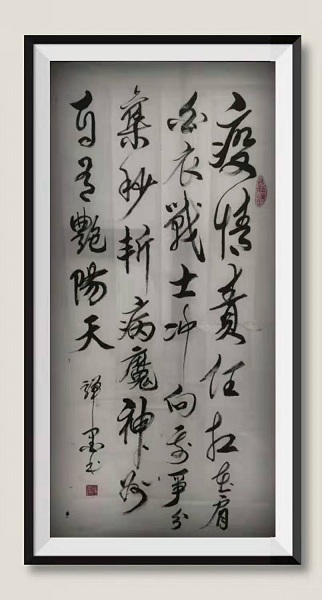 疫情責任扛在肩
白衣戰士冲向前爭分
奪秒斬病魔神州
自有艷陽天